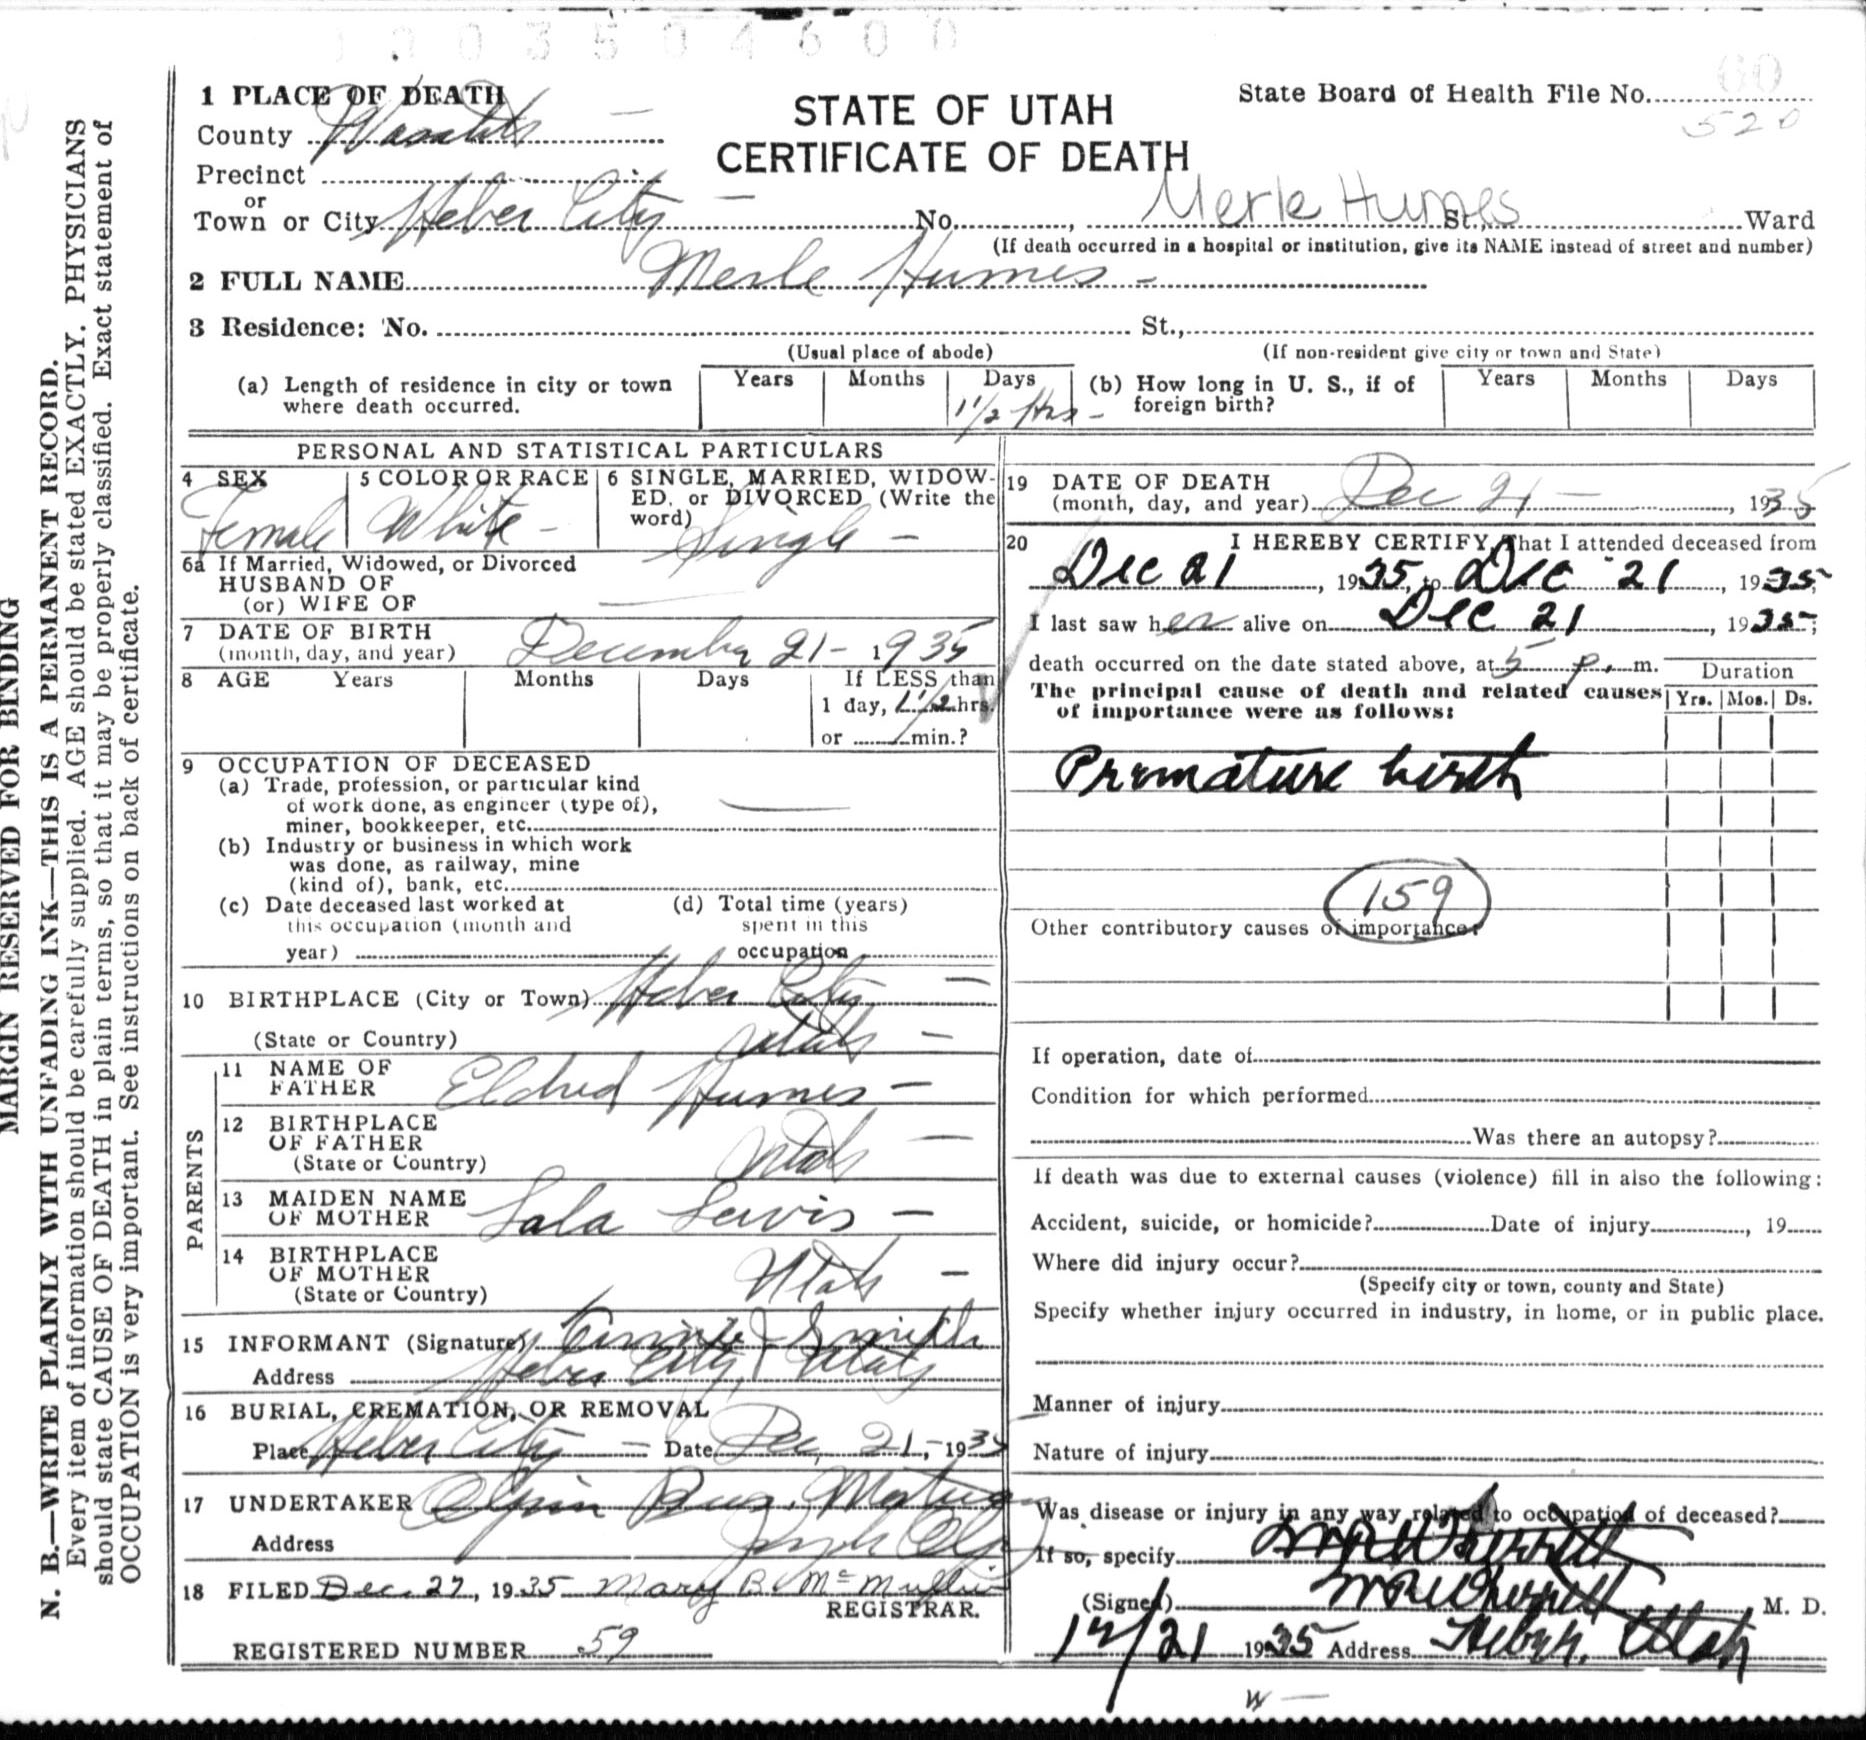 0003504600
1 PLACE OF DEATH
County Wasatch
STATE OF UTAH
CERTIFICATE OF DEATH
State Board of Health File No.
60
520
Precinct
or
Town or City Heber City No. , Merle Humes St., Ward
(If death occurred in a hospital or institution, give its NAME instead of street and number)
2 FULL NAME Merle Humes
3 Residence: No. St.,
(Usual place of abode) (If non-resident give city or town and State)
(a) Length of residence in city or town where death occurred. Years Months Days 1 1/2 Hrs
(b) How long in U. S., if of foreign birth? Years Months Days
PERSONAL AND STATISTICAL PARTICULARS
4 SEX
Female
5 COLOR OR RACE
White
6 SINGLE, MARRIED, WIDOW-
ED, or DIVORCED (Write the
word) Single
6a If Married, Widowed, or Divorced
HUSBAND OF
(or) WIFE OF
7 DATE OF BIRTH
(month, day, and year) December 21 - 1935
8 AGE Years Months Days If LESS than
1 day, 1 1/2 hrs.
or min.?
9 OCCUPATION OF DECEASED
(a) Trade, profession, or particular kind
of work done, as engineer (type of),
miner, bookkeeper, etc.
(b) Industry or business in which work
was done, as railway, mine
(kind of), bank, etc.
(c) Date deceased last worked at
this occupation (month and
year)
(d) Total time (years)
spent in this
occupation
10 BIRTHPLACE (City or Town) Heber City
(State or Country) Utah
PARENTS
11 NAME OF
FATHER Eldred Humes
12 BIRTHPLACE
OF FATHER
(State or Country) Utah
13 MAIDEN NAME
OF MOTHER Lala Lewis
14 BIRTHPLACE
OF MOTHER
(State or Country) Utah
15 INFORMANT (Signature) Smith
Address Heber City, Utah
16 BURIAL, CREMATION, OR REMOVAL
Place Heber City Date Dec, 21, 1935
17 UNDERTAKER
Address
18 FILED Dec. 27, 1935 Mary B. McMullin
REGISTRAR.
REGISTERED NUMBER 59
19 DATE OF DEATH
(month, day, and year) Dec 21 , 1935
20 I HEREBY CERTIFY, That I attended deceased from
Dec 21 , 1935, to Dec 21 , 1935;
I last saw her alive on Dec 21 , 1935;
death occurred on the date stated above, at 5 p. m.
Duration
The principal cause of death and related causes
of importance were as follows:
Yrs. Mos. Ds.
Premature birth
159
Other contributory causes of importance:
If operation, date of
Condition for which performed
Was there an autopsy?
If death was due to external causes (violence) fill in also the following:
Accident, suicide, or homicide? Date of injury , 19
Where did injury occur?
(Specify city or town, county and State)
Specify whether injury occurred in industry, in home, or in public place.
Manner of injury
Nature of injury
Was disease or injury in any way related to occupation of deceased?
If so, specify
(Signed) M. D.
12/21 1935 Address Heber, Utah
MARGIN RESERVED FOR BINDING
N. B.—WRITE PLAINLY WITH UNFADING INK—THIS IS A PERMANENT RECORD.
Every item of information should be carefully supplied. AGE should be stated EXACTLY. PHYSICIANS
should state CAUSE OF DEATH in plain terms, so that it may be properly classified. Exact statement of
OCCUPATION is very important. See instructions on back of certificate.